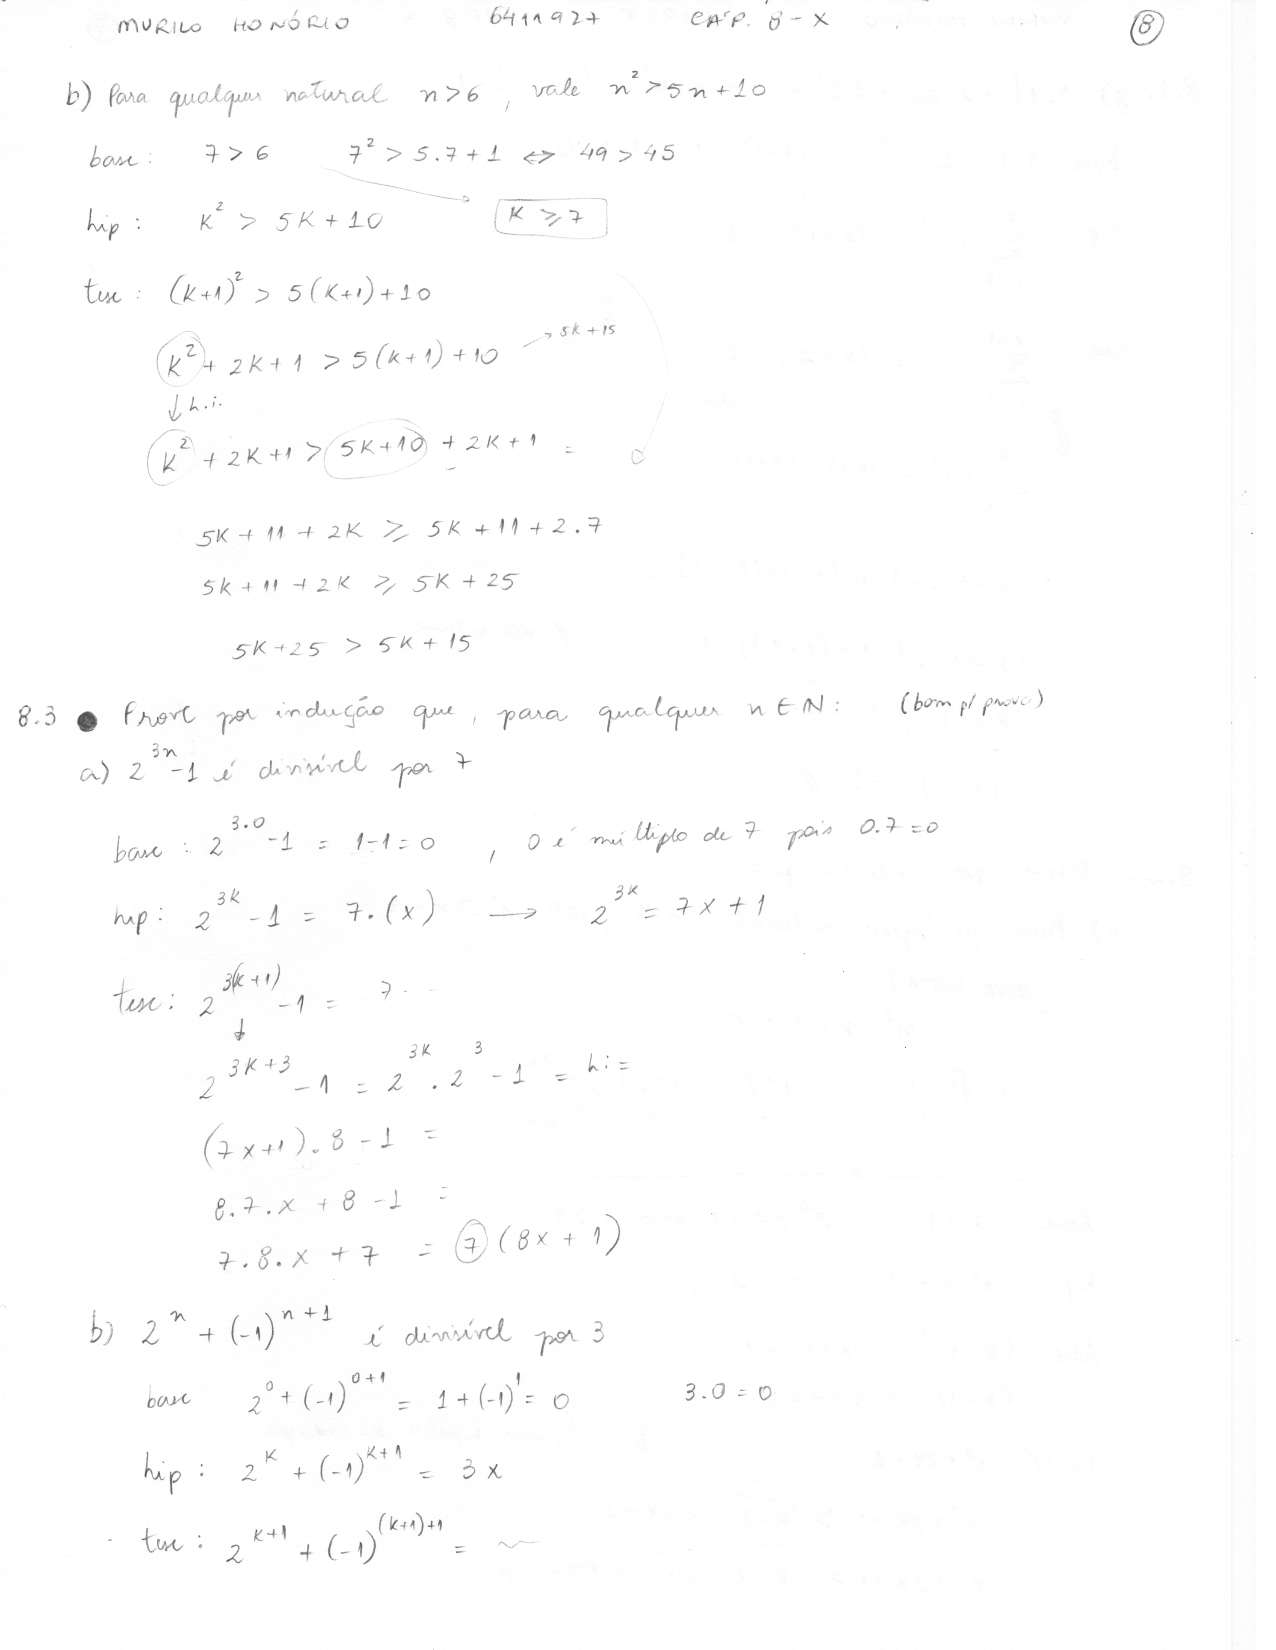 MURILO HONÓRIO 6411927 CAP. 8 - X 8
b) Para qualquer natural n > 6, vale n² > 5n + 10
base: 7 > 6 7² > 5.7 + 1 ⇔ 49 > 45
hip: K² > 5K + 10 K ≥ 7
tese: (K+1)² > 5(K+1) + 10
K² + 2K + 1 > 5(K+1) + 10 → 5K + 15
↓ h.i.
K² + 2K + 1 > 5K + 10 + 2K + 1 =
5K + 11 + 2K ≥ 5K + 11 + 2.7
5K + 11 + 2K ≥ 5K + 25
5K + 25 > 5K + 15
8.3 ● Prove por indução que, para qualquer n ∈ N: (bom p/ prova)
a) 2^{3n} - 1 é divisível por 7
base: 2^{3.0} - 1 = 1 - 1 = 0 , 0 é múltiplo de 7 pois 0.7 = 0
hip: 2^{3K} - 1 = 7.(x) → 2^{3K} = 7x + 1
tese: 2^{3(K+1)} - 1 = 7...
↓
2^{3K+3} - 1 = 2^{3K} . 2^3 - 1 = hi =
(7x+1).8 - 1 =
8.7.x + 8 - 1 =
7.8.x + 7 = 7(8x + 1)
b) 2^n + (-1)^{n+1} é divisível por 3
base 2^0 + (-1)^{0+1} = 1 + (-1)^1 = 0 3.0 = 0
hip: 2^K + (-1)^{K+1} = 3x
tese: 2^{K+1} + (-1)^{(K+1)+1} = ~